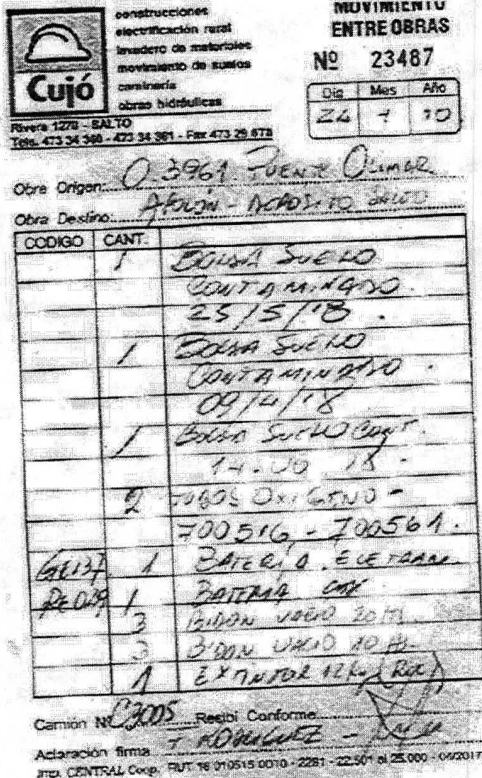 construcciones
electrificación rural
lavadero de materiales
movimiento de suelos
caminería
obras hidráulicas
Cujó
Rivera 1278 - SALTO
Tels. 473 34 360 - 473 34 361 - Fax 473 29 678
MOVIMIENTO
ENTRE OBRAS
Nº 23487
Día Mes Año
Obra Origen: O.3961 PUENTE OLIMAR
Obra Destino: DEPOSITO SALTO
CODIGO CANT.
1 BOLSA SUELO
CONTAMINADO.
25/5/18.
1 BOLSA SUELO
CONTAMINADO.
09/4/18
1 BOLSA SUELO CONT.
2 TUBOS OXIGENO -
700516 - 700561.
GE137 1 BATERIA
1 BATERIA
3 BIDON VACIO 20
3 BIDON VACIO 10
1 EXTINTOR 12
Camión Nº C3005 Recibí Conforme
Aclaración firma
IMP. CENTRAL Coop. RUT 16 010515 0010 - 2281 - 22.501 al 25.000 - 04/2017